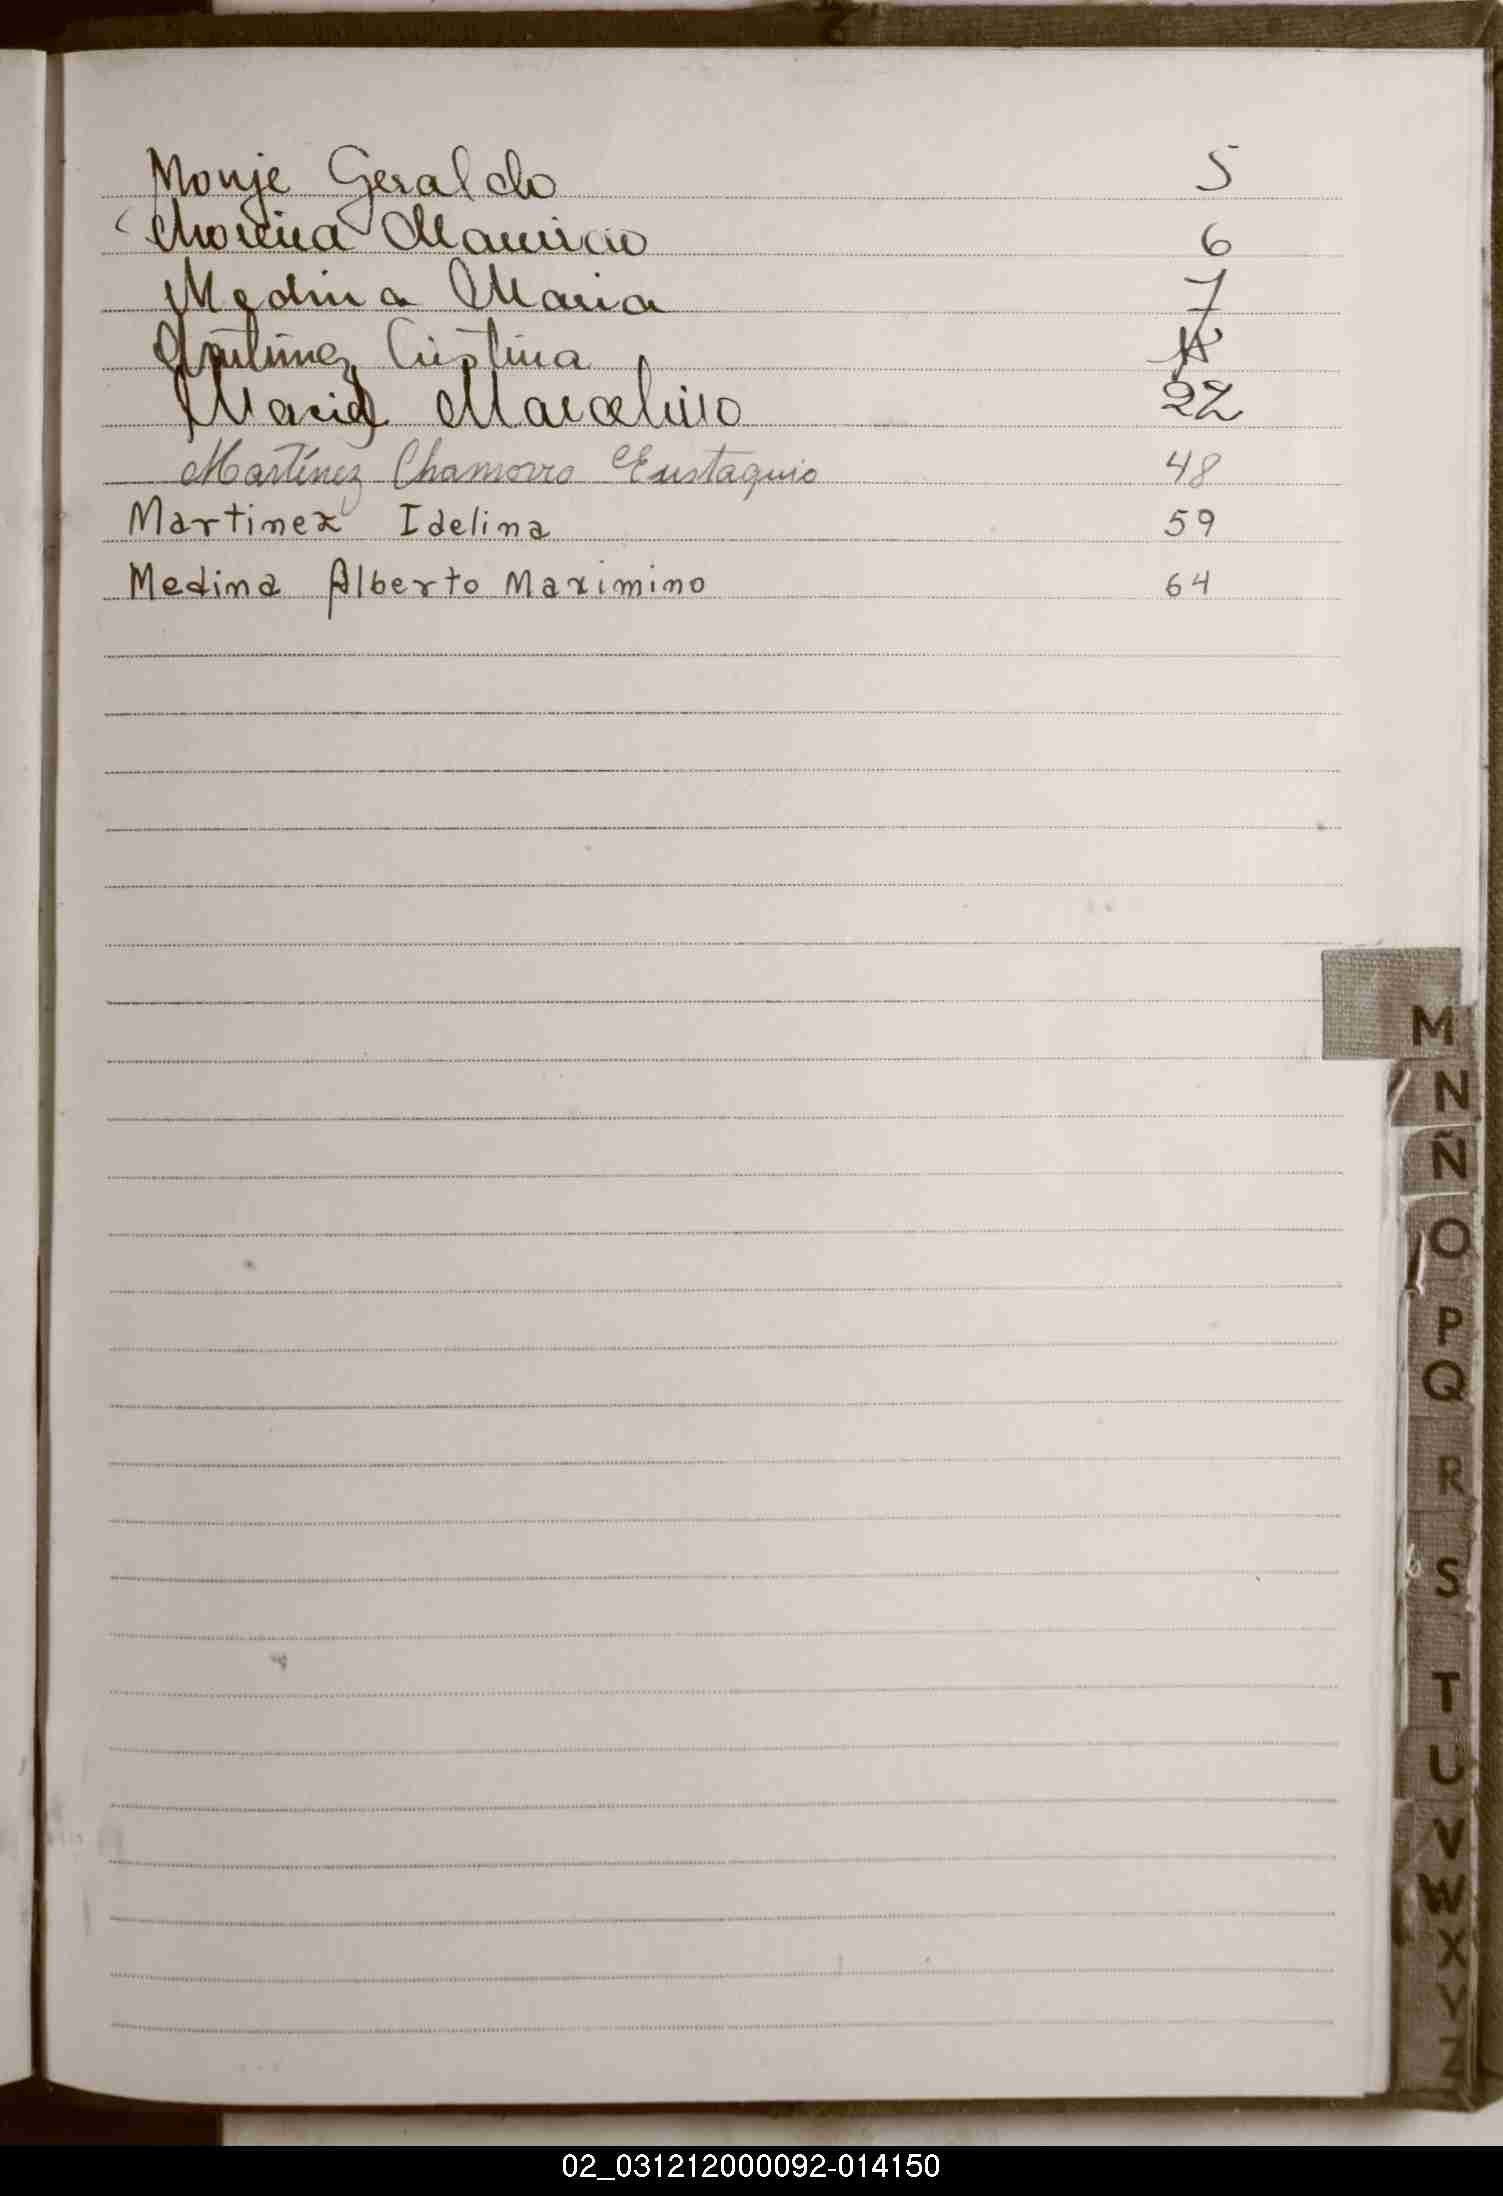 Monje Geraldo 5
Moreira Mauricio 6
Medina Maria 7
Martinez Cristina
Marcelino 22
Martínez Chamorro Eustaquio 48
Martinez Idelina 59
Medina Alberto Maximino 64
M
N
Ñ
O
P
Q
R
S
T
U
V
W
X
Y
Z
02_031212000092-014150